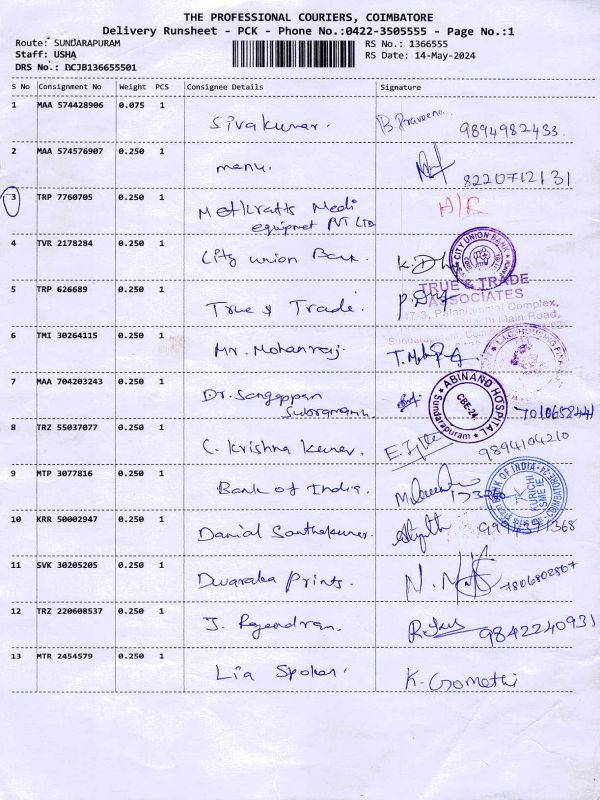 THE PROFESSIONAL COURIERS, COIMBATORE
Delivery Runsheet - PCK - Phone No.:0422-3505555 - Page No.:1
Route: SUNDARAPURAM
Staff: USHA
DRS No.: DCJB136655501
RS No.: 1366555
RS Date: 14-May-2024
S No Consignment No Weight PCS Consignee Details Signature
1 MAA 574428906 0.075 1 Sivakumar. B. Praveena. 9894982433.
2 MAA 574576907 0.250 1 menu. 8220712131
3 TRP 7760705 0.250 1 Medi
equipmet PVT LTD
4 TVR 2178284 0.250 1 City union Bank.
CITY UNION BANK
5 TRP 626689 0.250 1 True & Trade.
TRUE & TRADE
ASSOCIATES
Complex,
Main Road,
6 TMI 30264115 0.250 1 Mr. Mohanraj.
7 MAA 704203243 0.250 1 Dr. Sangappan
ABINAND HOSPITAL
CBE-24
Sundarapuram
8 TRZ 55037077 0.250 1 C. Krishna Kumar. 9894104210
9 MTP 3077816 0.250 1 Bank of India.
BANK OF INDIA
KURICHI
SME IE
10 KRR 50002947 0.250 1 Danial Santhakumar.
11 SVK 30205205 0.250 1 Dwaraka Prints. 7806802567
12 TRZ 220608537 0.250 1 J. Rajendran. 9842240931
13 MTR 2454579 0.250 1 Lia Spoken. K. Gomathi